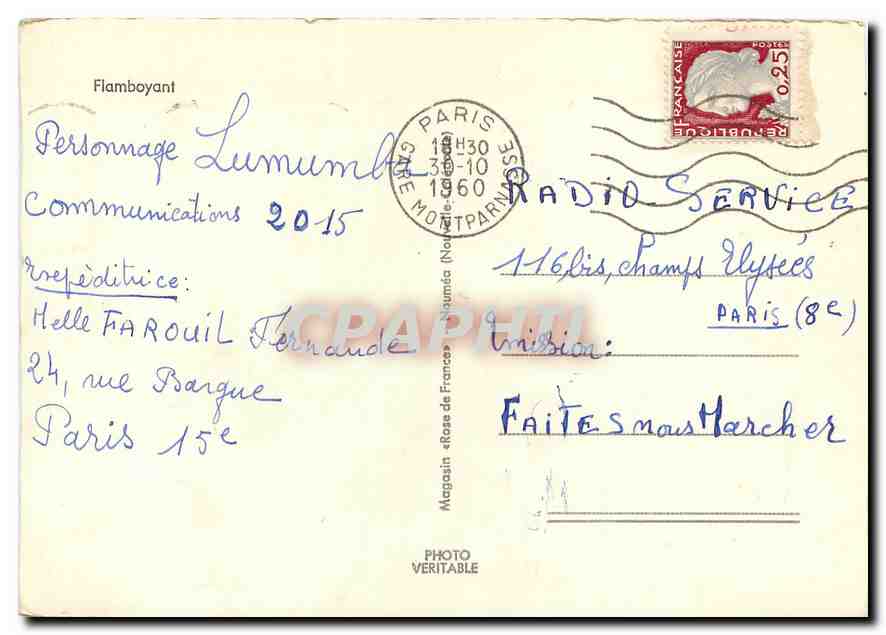 Flamboyant
Personnage Lumumba
Communications 2015
Expéditrice:
Melle FAROUIL Fernande
24, rue Bargue
Paris 15e
PARIS
18H30
30-10
1960
GARE MONTPARNASSE
Magasin «Rose de France» Nouméa
PHOTO
VERITABLE
REPUBLIQUE FRANÇAISE
POSTES
0,25
RADIO-SERVICE
116bis, champs Elysées
PARIS (8e)
Emission:
FAITES nous Marcher
CPAPHIL